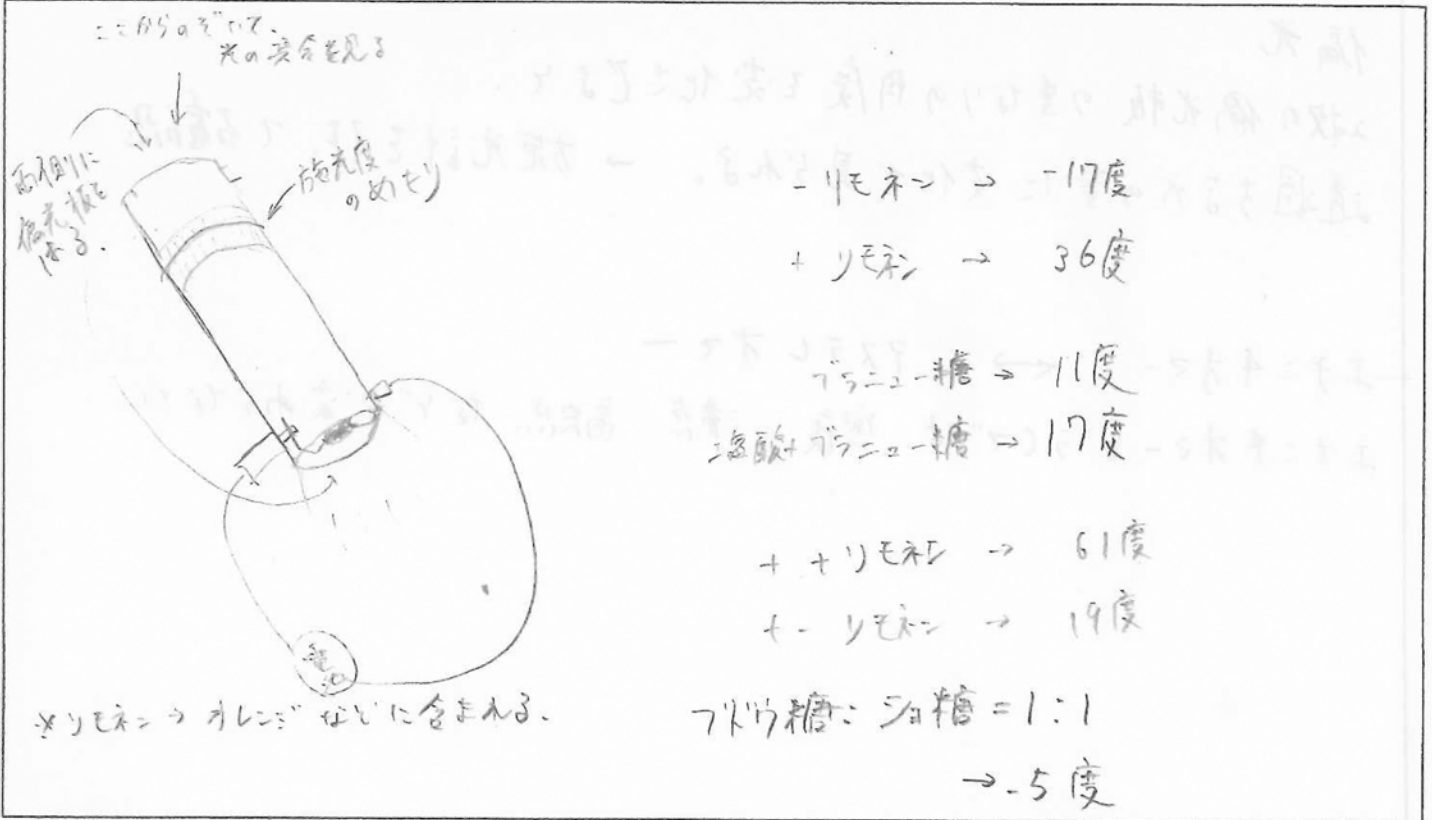 ここからのぞいて、
光の度合を見る
両側に
偏光板を
はる。
旋光度
のめもり
電池
※リモネン→オレンジなどに含まれる。
-リモネン → -17度
+ リモネン → 36度
グラニュー糖 → 11度
塩酸+グラニュー糖 → 17度
+ +リモネン → 61度
+ - リモネン → 19度
ブドウ糖:ショ糖=1:1
→-5度